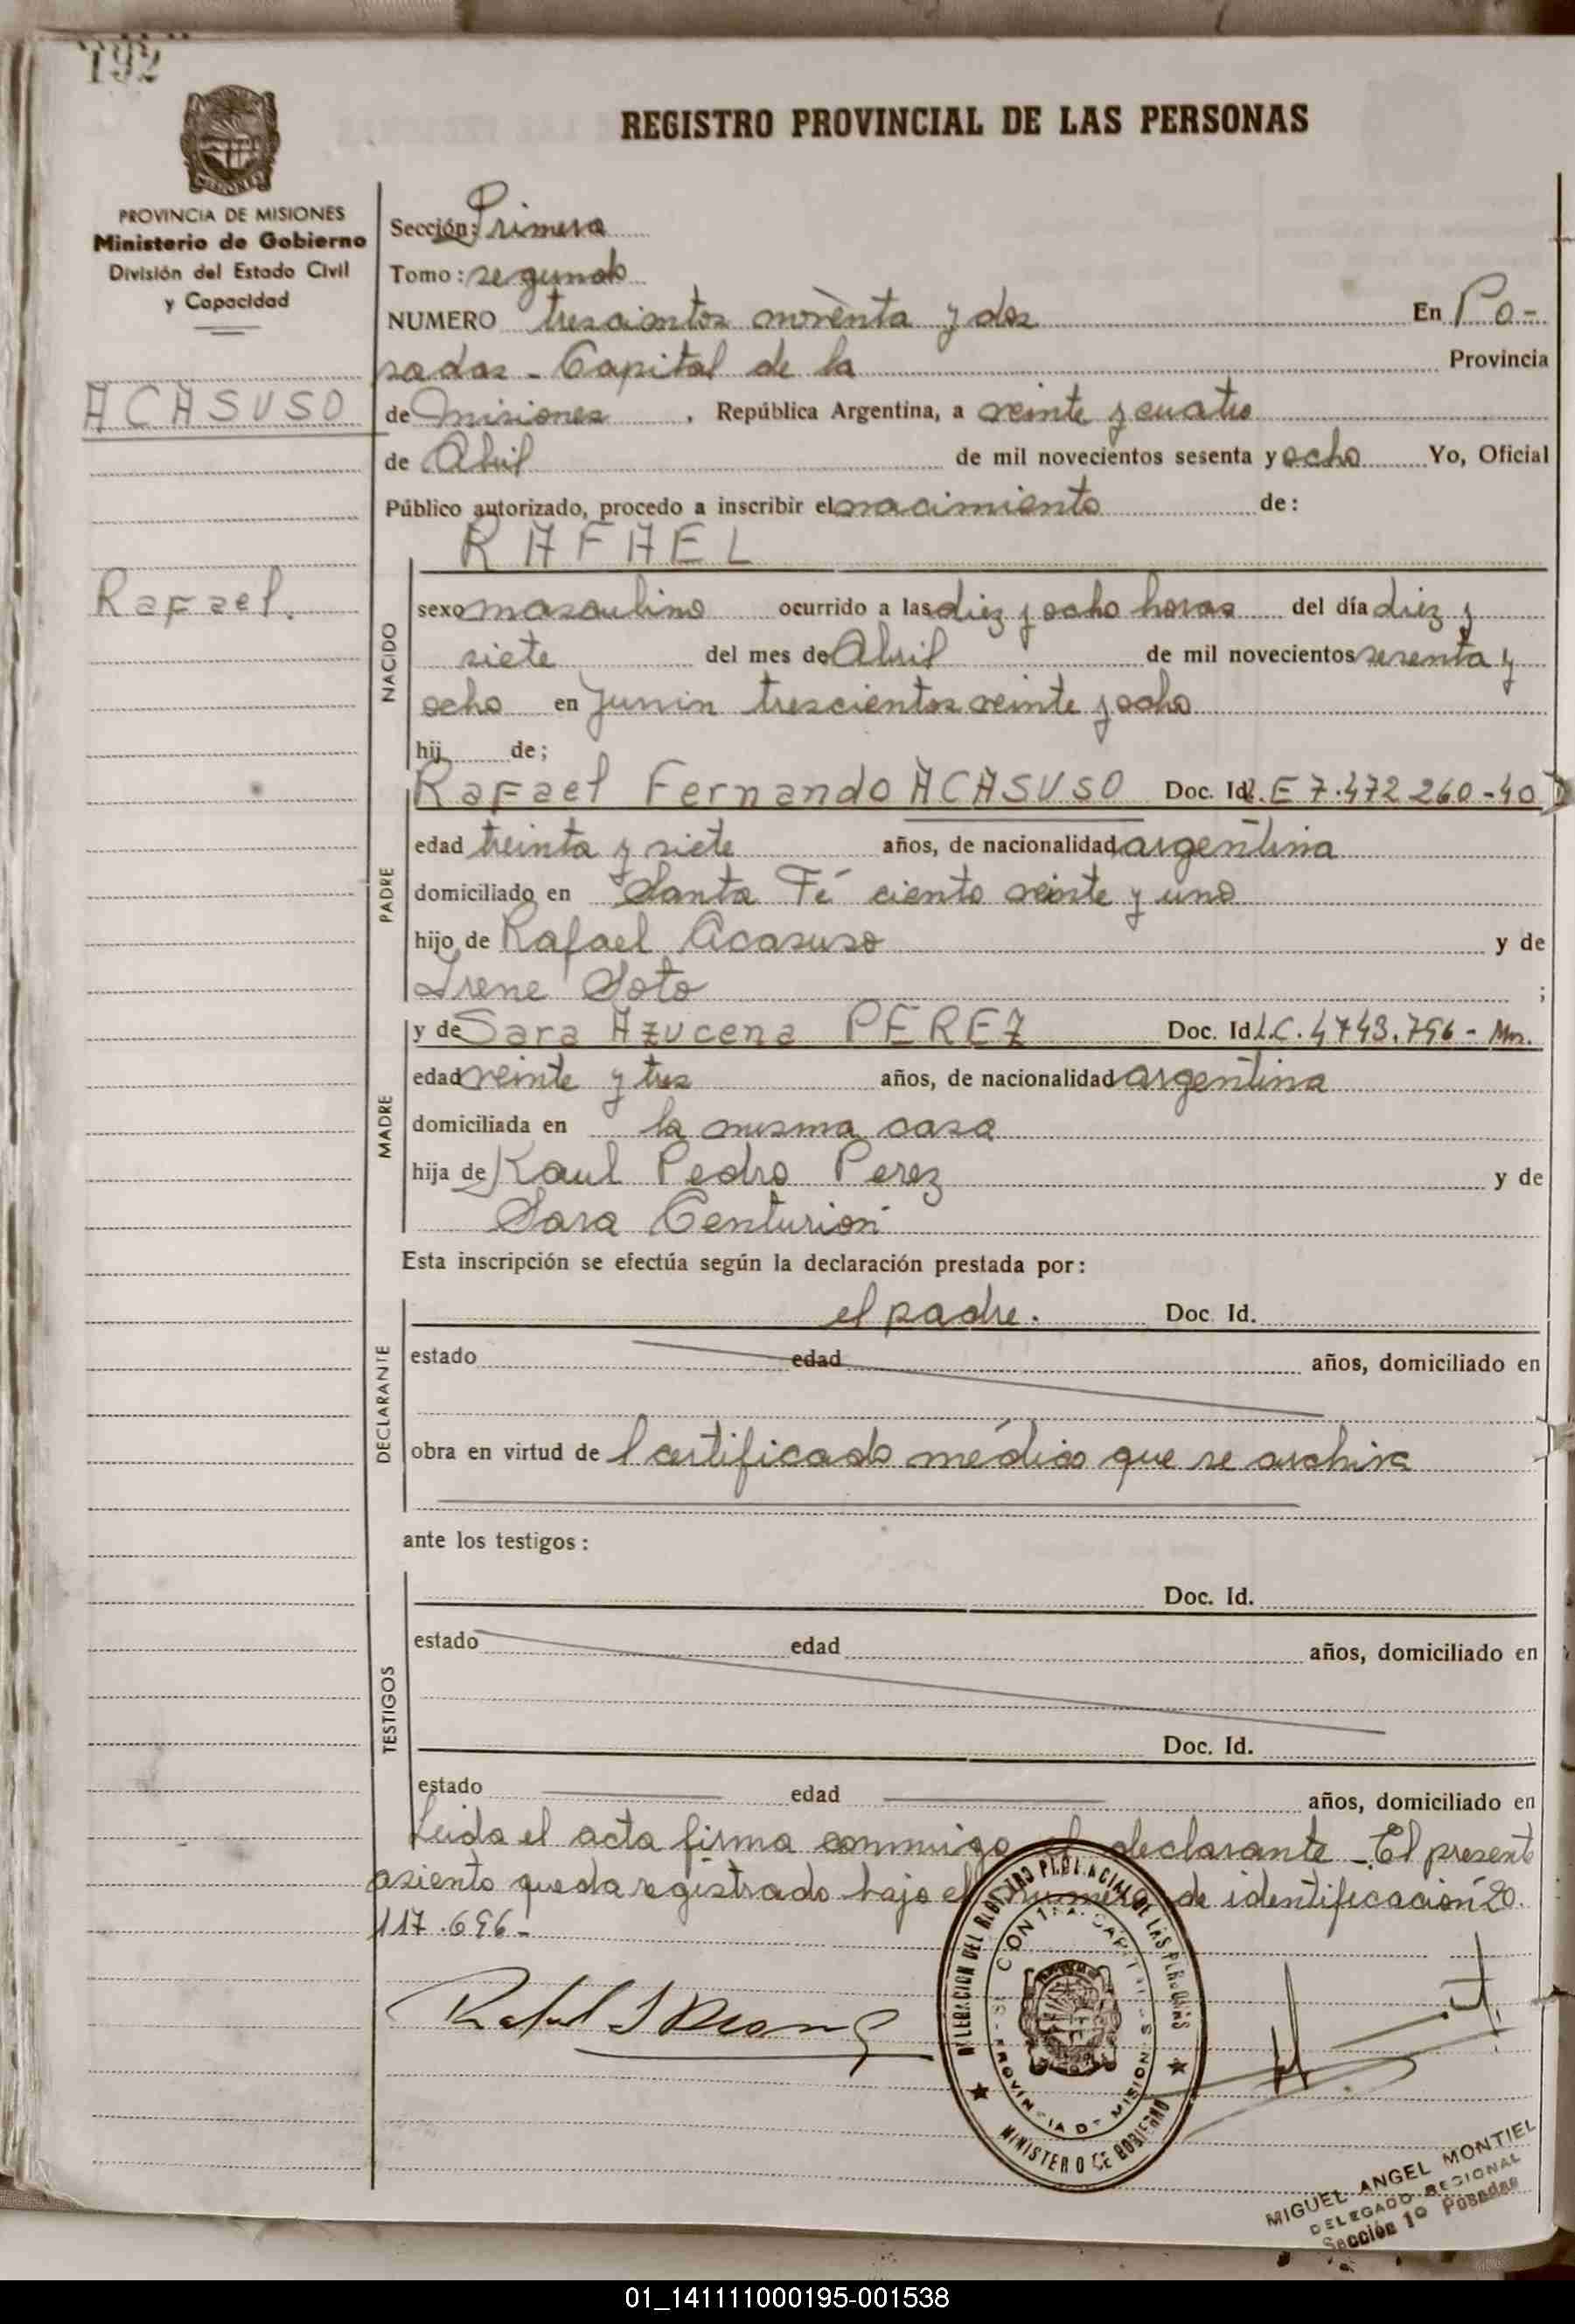 192
REGISTRO PROVINCIAL DE LAS PERSONAS
PROVINCIA DE MISIONES
Ministerio de Gobierno
División del Estado Civil
y Capacidad
ACASUSO
Rafael.
Sección: Primera
Tomo: segundo
NUMERO trescientos noventa y dos En Po-
sadas - Capital de la Provincia
de Misiones, República Argentina, a veinte y cuatro
de Abril de mil novecientos sesenta y ocho Yo, Oficial
Público autorizado, procedo a inscribir el nacimiento de:
RAFAEL
NACIDO
sexo masculino ocurrido a las diez y ocho horas del día diez y
siete del mes de Abril de mil novecientos sesenta y
ocho en Junin trescientos veinte y ocho
hij de;
PADRE
Rafael Fernando ACASUSO Doc. Id. L.E 7.472 260-40
edad treinta y siete años, de nacionalidad argentina
domiciliado en Santa Fé ciento veinte y uno
hijo de Rafael Acasuso y de
Irene Soto ;
MADRE
y de Sara Azucena PEREZ Doc. Id L.C. 4743.796 - Mn.
edad veinte y tres años, de nacionalidad argentina
domiciliada en la misma casa
hija de Raul Pedro Perez y de
Sara Centurión
Esta inscripción se efectúa según la declaración prestada por:
DECLARANTE
el padre. Doc Id.
estado edad años, domiciliado en
obra en virtud de l certificado médico que se archiva
ante los testigos:
TESTIGOS
Doc. Id.
estado edad años, domiciliado en
Doc. Id.
estado edad años, domiciliado en
Leida el acta firma conmigo el declarante - El presente
asiento queda registrado bajo el numero de identificación 20.
117.696-
DELEGACION DEL REGISTRO PROVINCIAL DE LAS PERSONAS
PROVINCIA DE MISIONES
MINISTERIO DE GOBIERNO
MIGUEL ANGEL MONTIEL
DELEGADO REGIONAL
Sección 1º Posadas
01_141111000195-001538